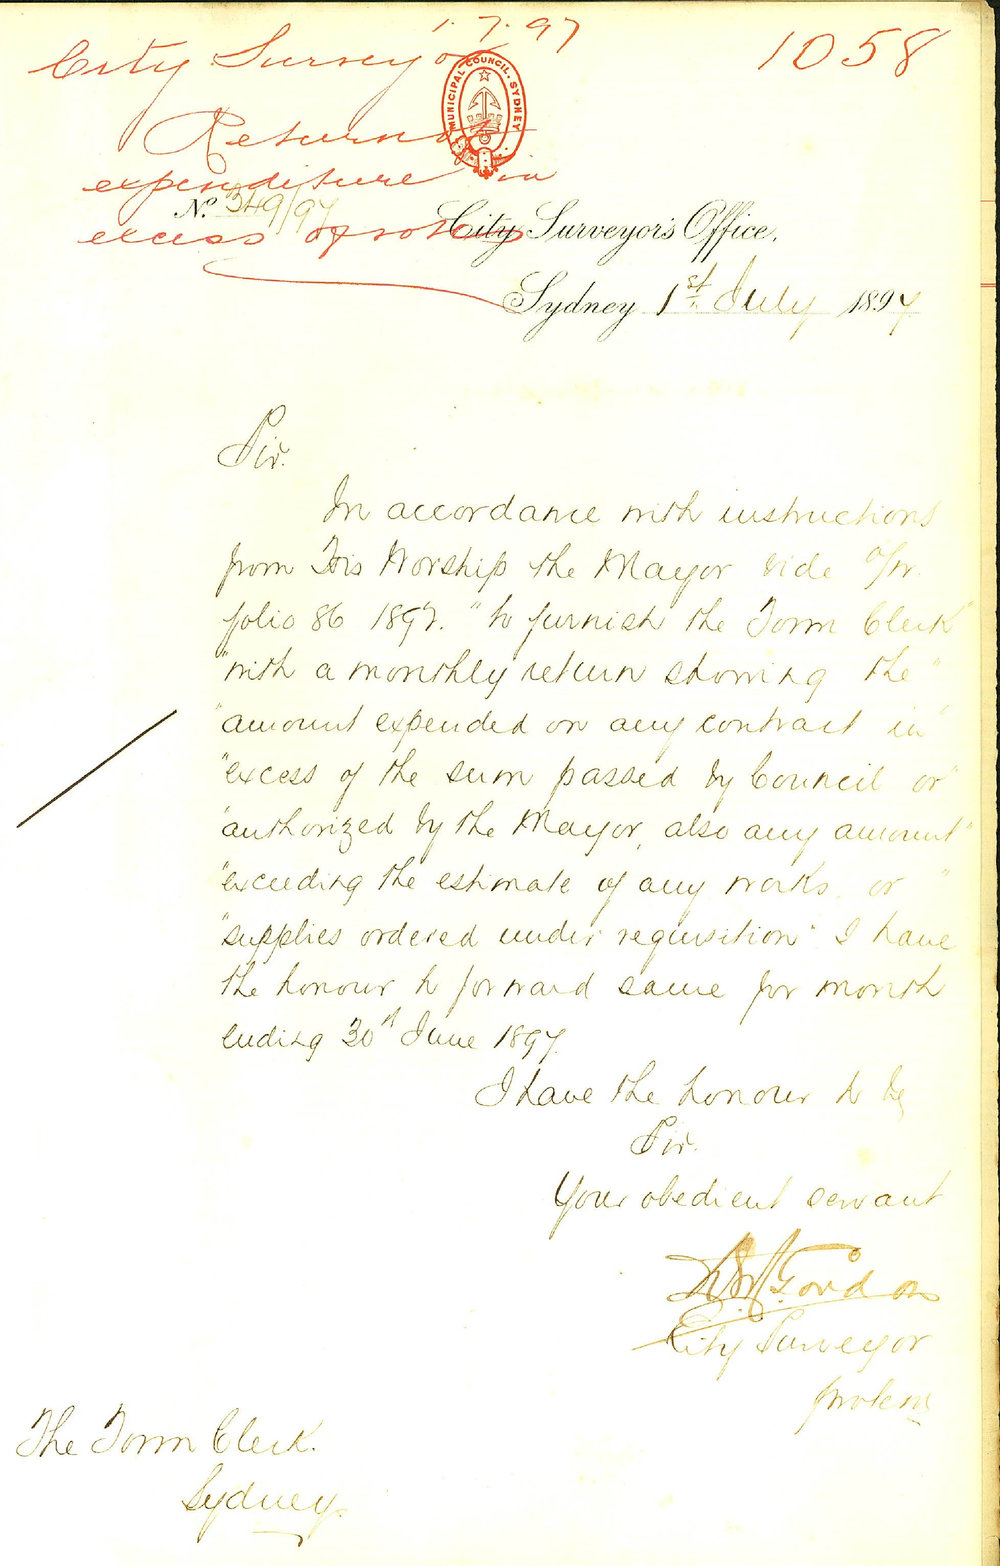 1.7.97
1058
City Surveyor
MUNICIPAL COUNCIL. SYDNEY
Return of
expenditure in
No. 349/97
excess of votes
City Surveyor's Office,
Sydney 1st July 1897.
Sir.
In accordance with instructions
from His Worship the Mayor vide
folio 86 1897. "to furnish the Town Clerk"
"with a monthly return showing the"
"amount expended on any contract in"
"excess of the sum passed by Council or"
"authorized by the Mayor, also any amount"
"exceeding the estimate of any works or"
"supplies ordered under requisition" I have
the honour to forward same for month
ending 30th June 1897.
I have the honour to be
Sir.
Your obedient servant
Gordon
City Surveyor
protem
The Town Clerk.
Sydney.